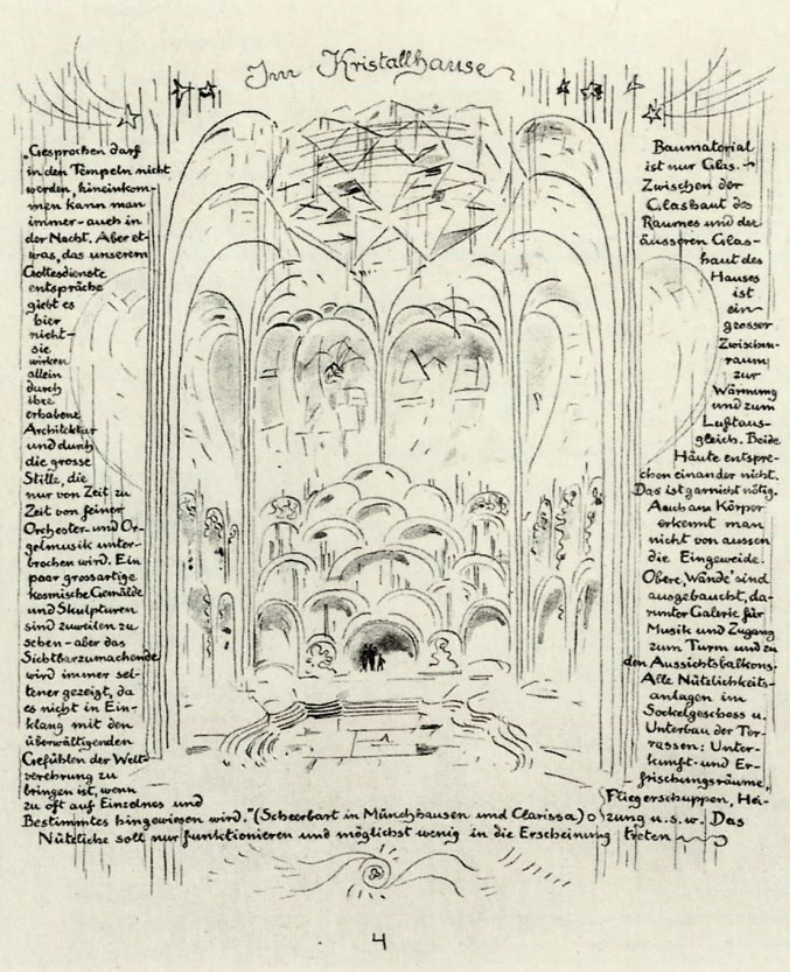 Im Kristallhause
„Gesprochen darf
in den Tempeln nicht
werden, hineinkom-
men kann man
immer - auch in
der Nacht. Aber et-
was, das unserem
Gottesdienste
entspräche
giebt es
hier
nicht -
sie
wirken
allein
durch
ihre
erhabene
Architektur
und durch
die grosse
Stille, die
nur von Zeit zu
Zeit von feiner
Orchester- und Or-
gelmusik unter-
brochen wird. Ein
paar grossartige
kosmische Gemälde
und Skulpturen
sind zuweilen zu
sehen - aber das
Sichtbarzumachende
wird immer sel-
tener gezeigt, da
es nicht in Ein-
klang mit den
überwältigenden
Gefühlen der Welt-
verehrung zu
bringen ist, wenn
zu oft auf Einzelnes und
Bestimmtes hingewiesen wird." (Scheerbart in Münchhausen und Clarissa) o
Baumaterial
ist nur Glas. -
Zwischen der
Glashaut des
Raumes und der
äusseren Glas-
haut des
Hauses
ist
ein
grosser
Zwischen-
raum
zur
Wärmung
und zum
Luftaus-
gleich. Beide
Häute entspre-
chen einander nicht.
Das ist garnicht nötig.
Auch am Körper
erkennt man
nicht von aussen
die Eingeweide.
Obere „Wände" sind
ausgebaucht, da-
runter Galerie für
Musik und Zugang
zum Turm und zu
den Aussichtsbalkons.
Alle Nützlichkeits-
anlagen im
Sockelgeschoss u.
Unterbau der Ter-
rassen: Unter-
kunft- und Er-
frischungsräume,
Fliegerschuppen, Hei-
zung u.s.w. Das
Nützliche soll nur funktionieren und möglichst wenig in die Erscheinung treten
4